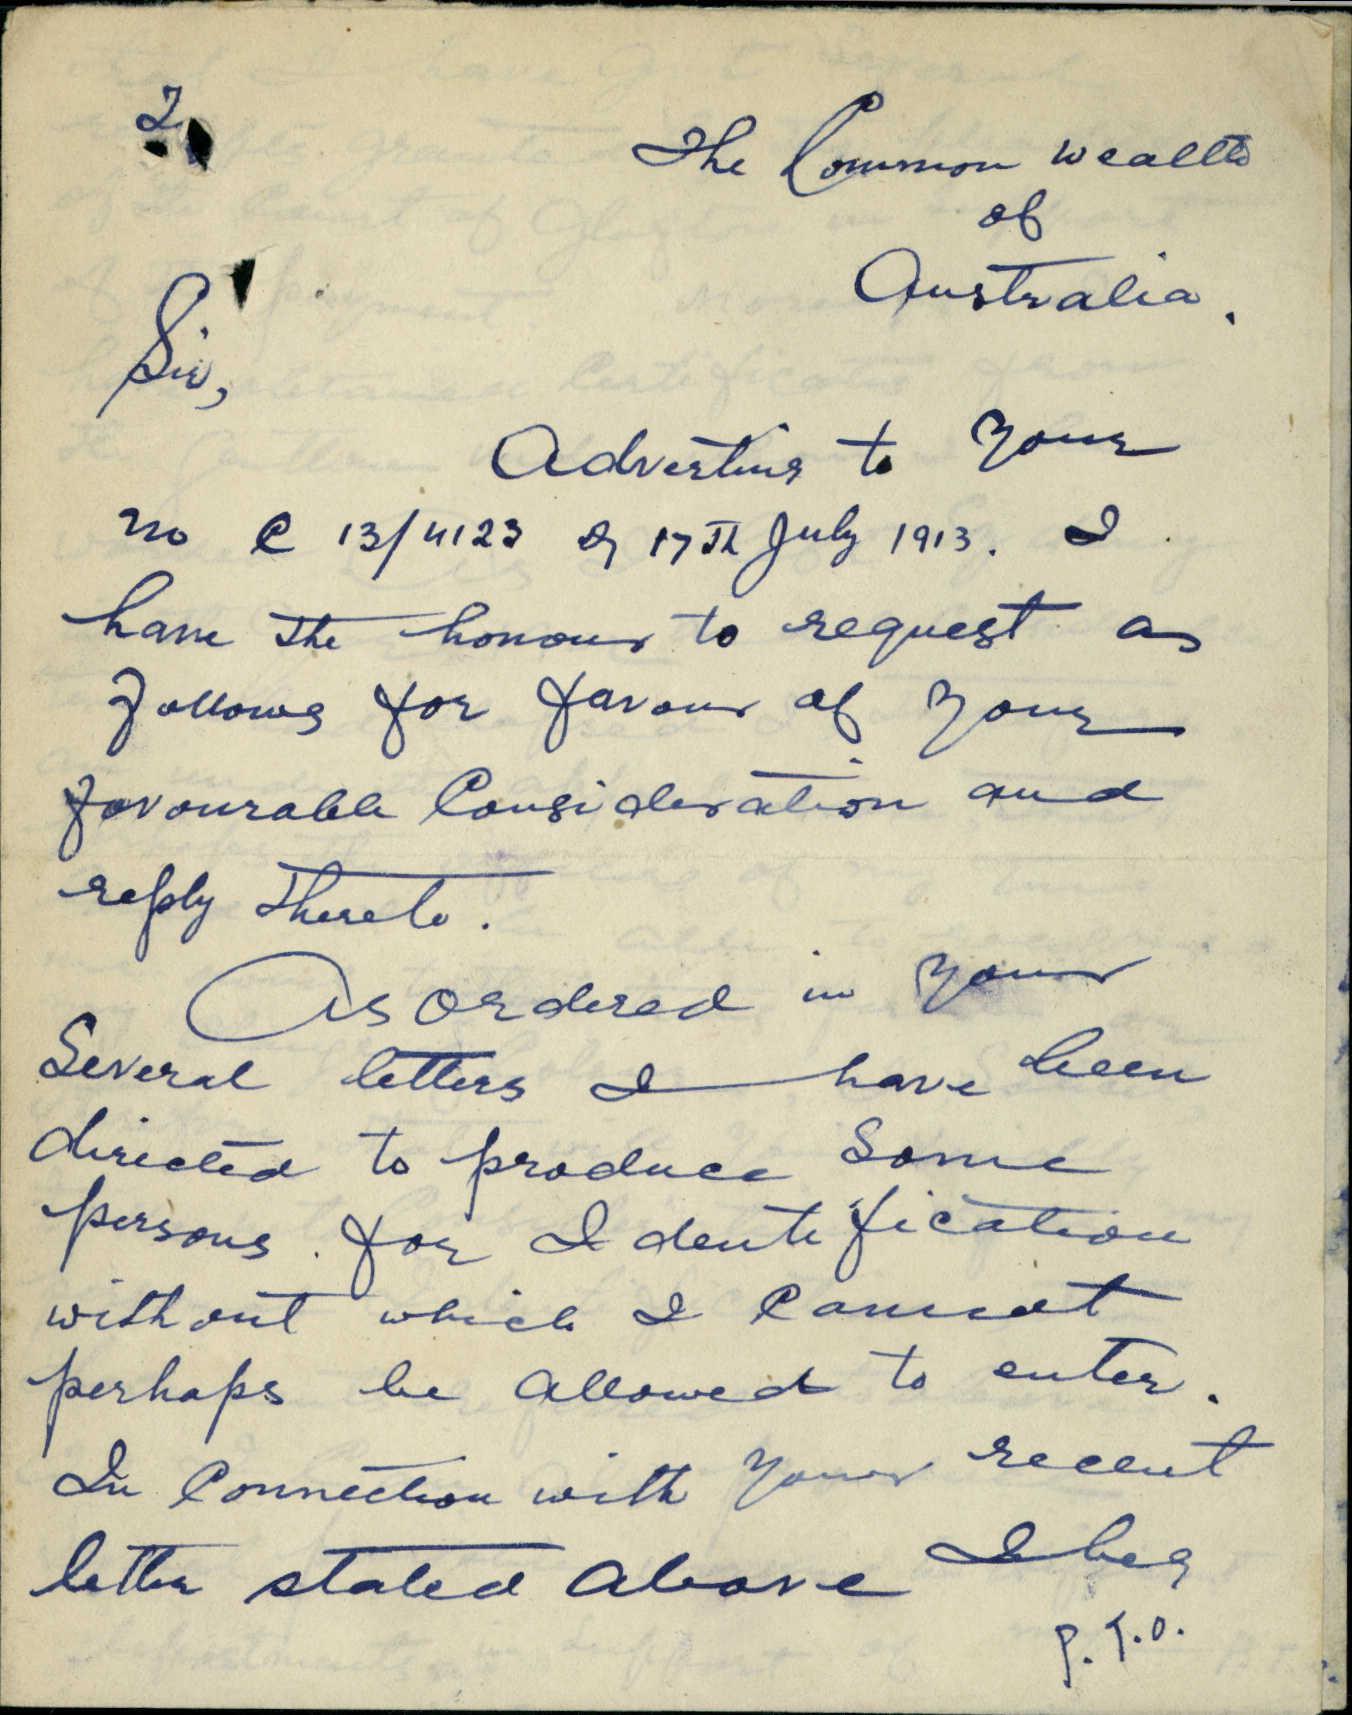 2
The Common wealth
of
Australia.
Sir,
Adverting to your
no C 13/4123 of 17th July 1913. I
have the honour to request as
follows for favour of your
favourable Consideration and
reply thereto.
As ordered in your
Several letters I have been
directed to produce Some
persons for Identification
without which I Cannot
perhaps be allowed to enter.
In Connection with your recent
letter stated above I beg
P.T.O.